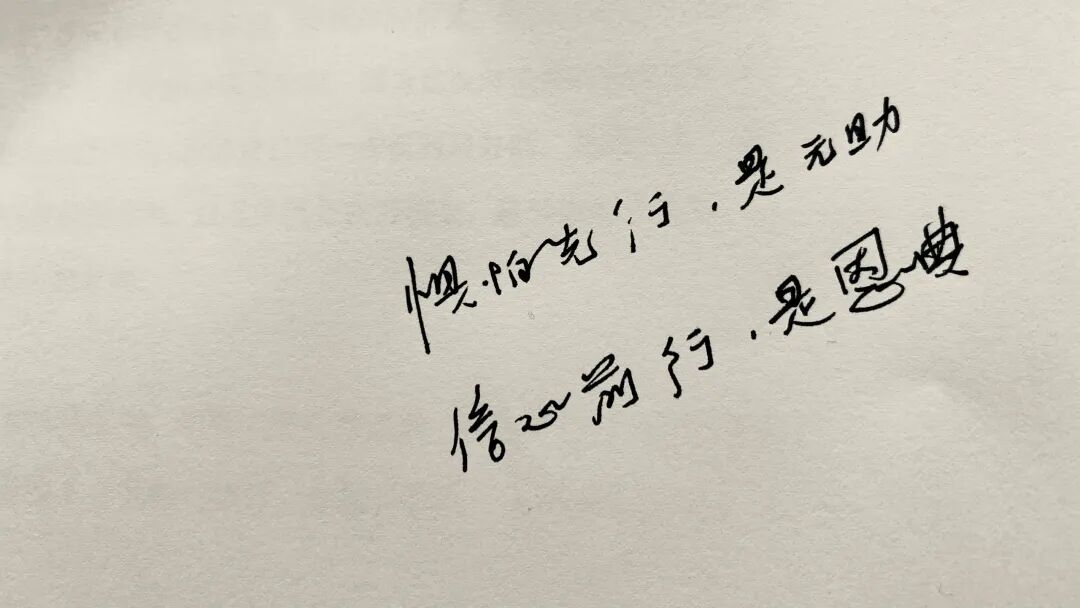 惧怕先行，是元助
信心前行，是恩典